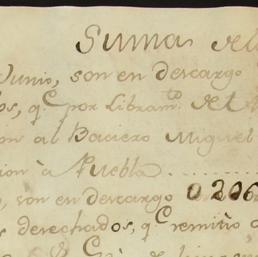 Suma del
Junio, son en descargo
os, q.e por Libram.to del
on al Baciero Miguel
cion à Puebla
, son en descargo 0206
s desechados, q.e remitiò a